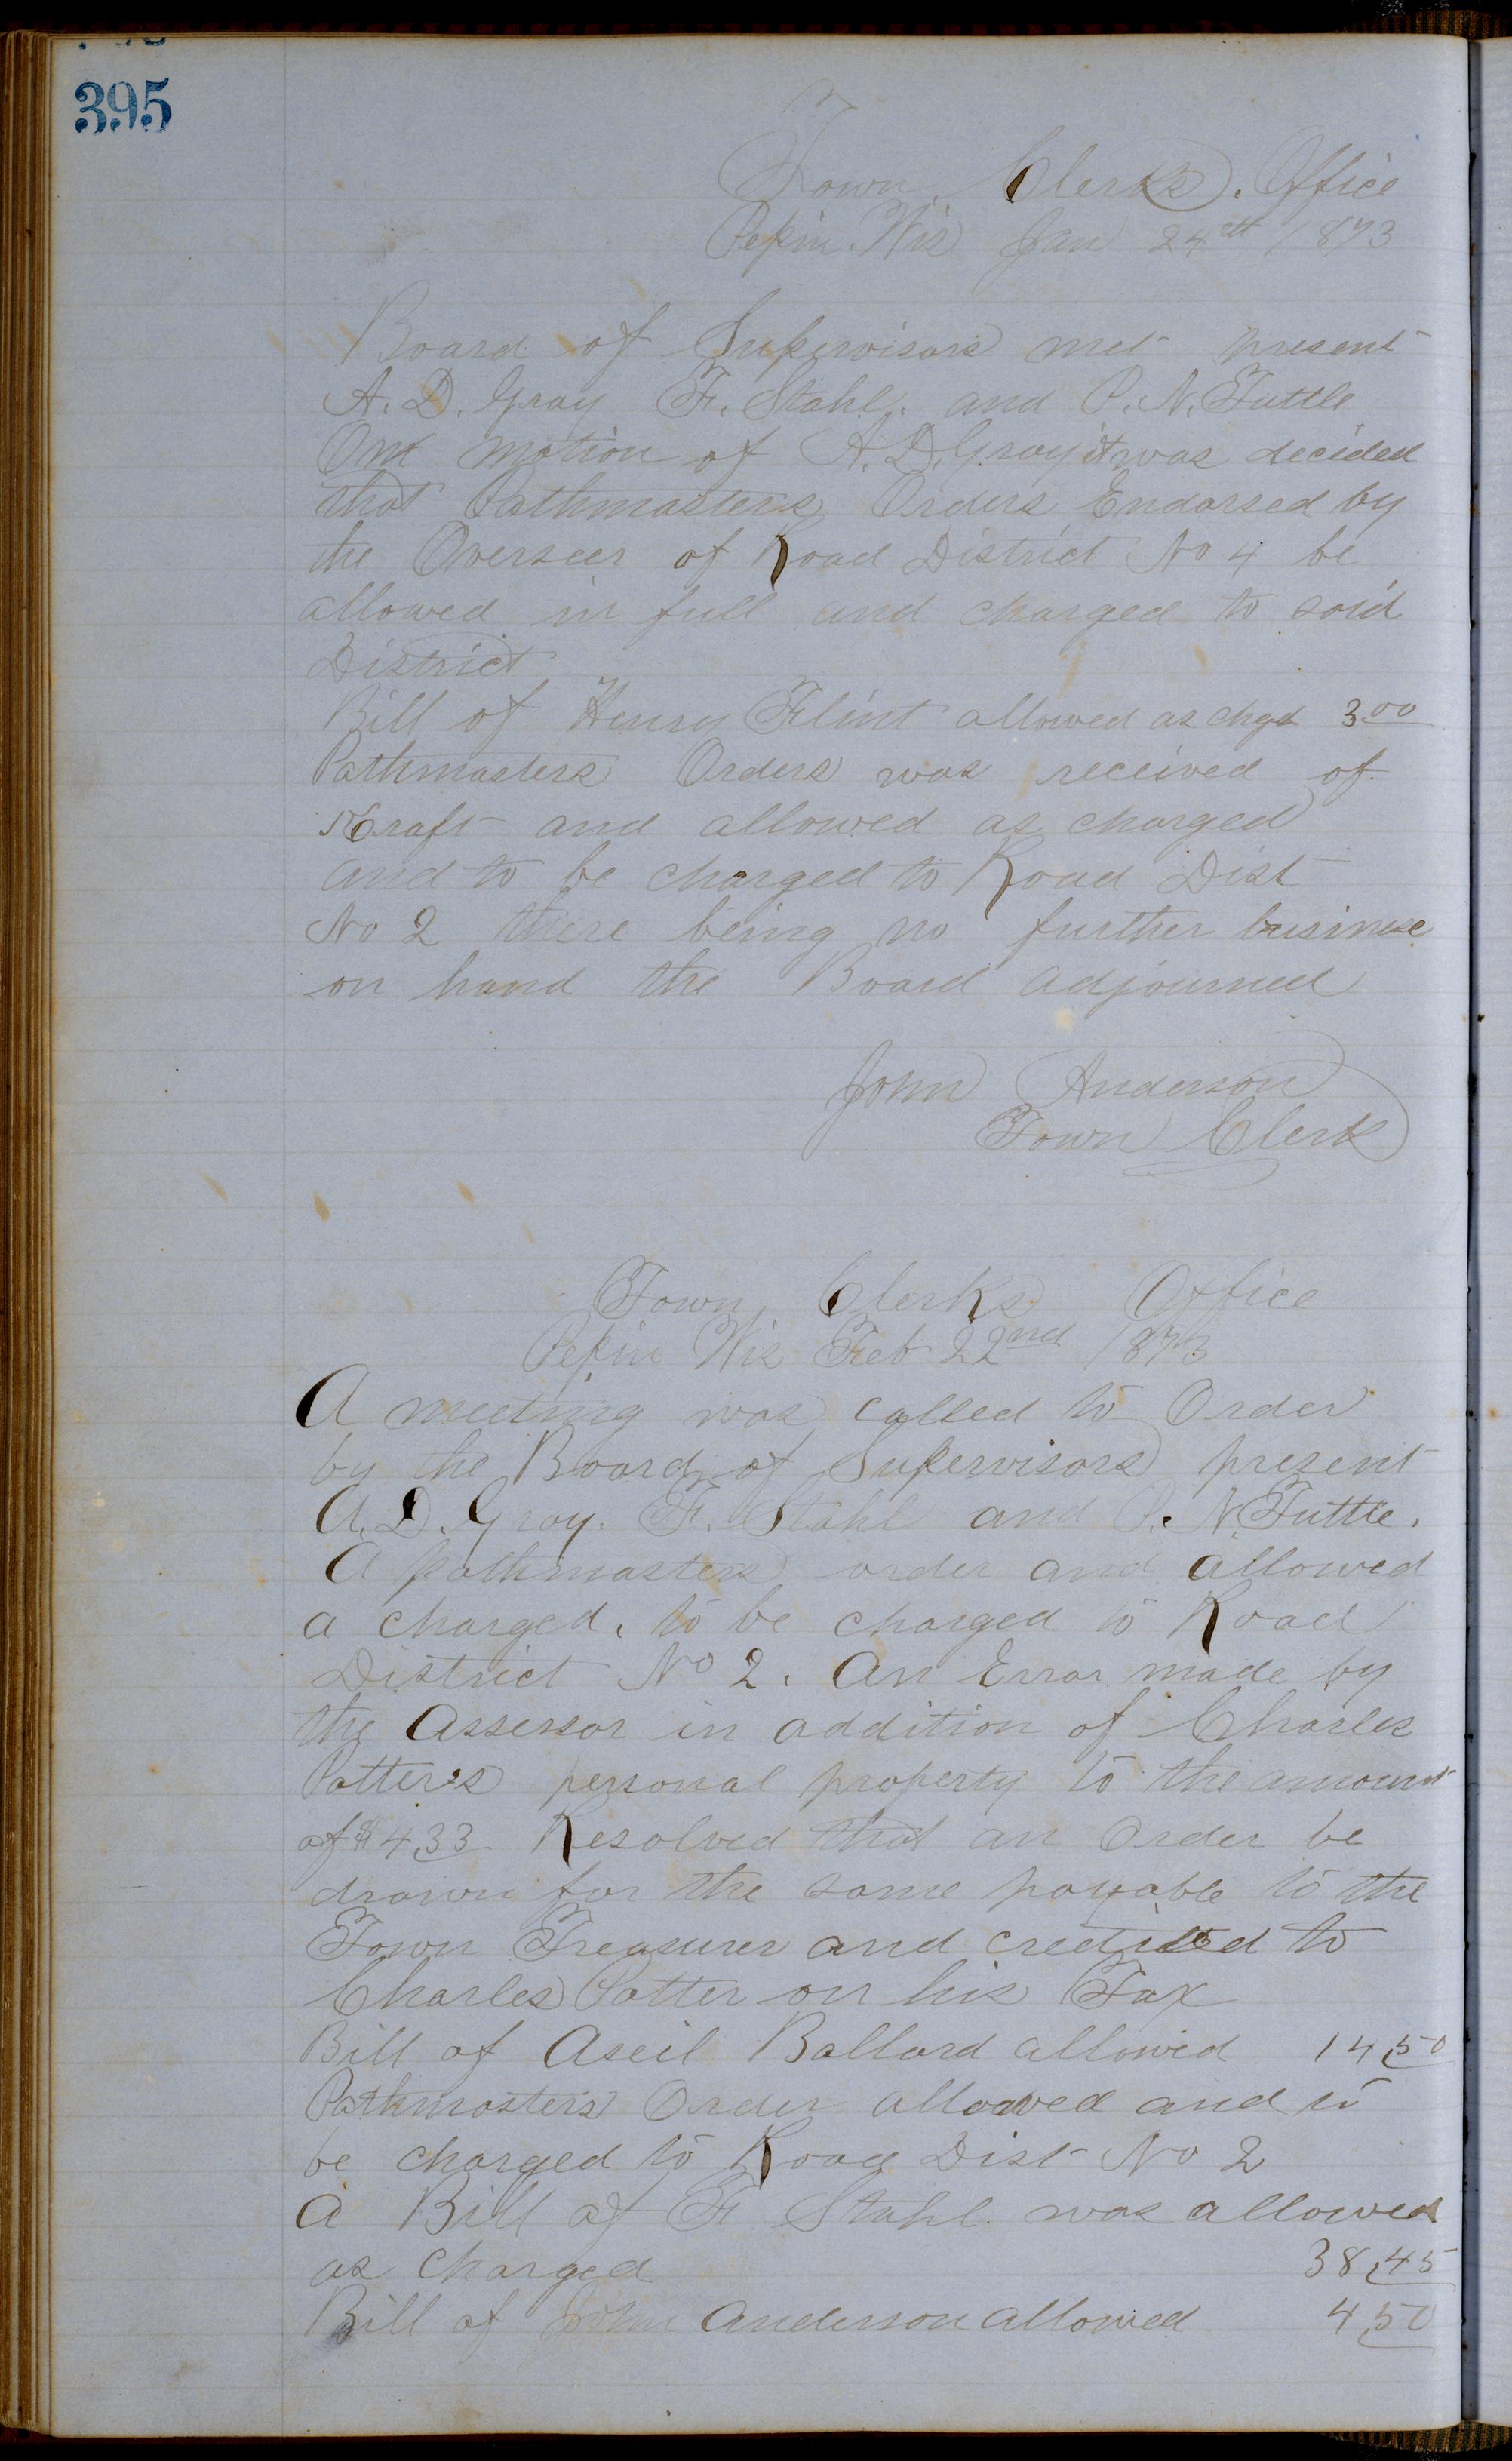 395
Town Clerks. Office
Pepin Wis Jan 24th 1873
Board of Supervisors met present
A. D. Gray F. Stahl. and P. N. Tuttle
On motion of A. D. Gray it was decided
that Pathmasters Orders Endorsed by
the Overseer of Road District No 4 be
allowed in full and charged to said
District
Bill of Henry Flint allowed as chgd 3.00
Pathmasters Orders was received of
Kraft and allowed as charged
and to be charged to Road Dist
No 2 there being no further business
on hand the Board adjourned
John Anderson
Town Clerk
Town Clerks Office
Pepin Wis Feb 22nd 1873
A meeting was called to Order
by the Board of Supervisors present
A. D. Gray. F. Stahl and P. N. Tuttle.
A pathmasters order and allowed
a charged. to be charged to Road
District No 2. An Error made by
the Assessor in addition of Charles
Patter's personal property to the amount
of $4,33 Resolved that an Order be
drawn for the same payable to the
Town Treasurer and credited to
Charles Patter on his Tax
Bill of Aseil Ballard allowed 14,50
Pathmasters Order allowed and to
be charged to Road Dist No 2
A Bill of F Stahl was allowed
as charged 38,45
Bill of John Anderson allowed 4,50